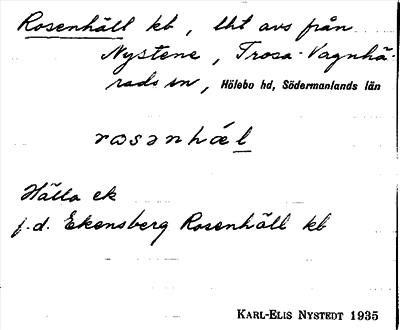 Rosenhäll kb, lht avs från
Nystene, Trosa-Vagnhä-
rads sn, Hölebo hd, Södermanlands län
rωsənhæ̂l
Hälla ek
f.d. Ekensberg Rosenhäll kb
KARL-ELIS NYSTEDT 1935